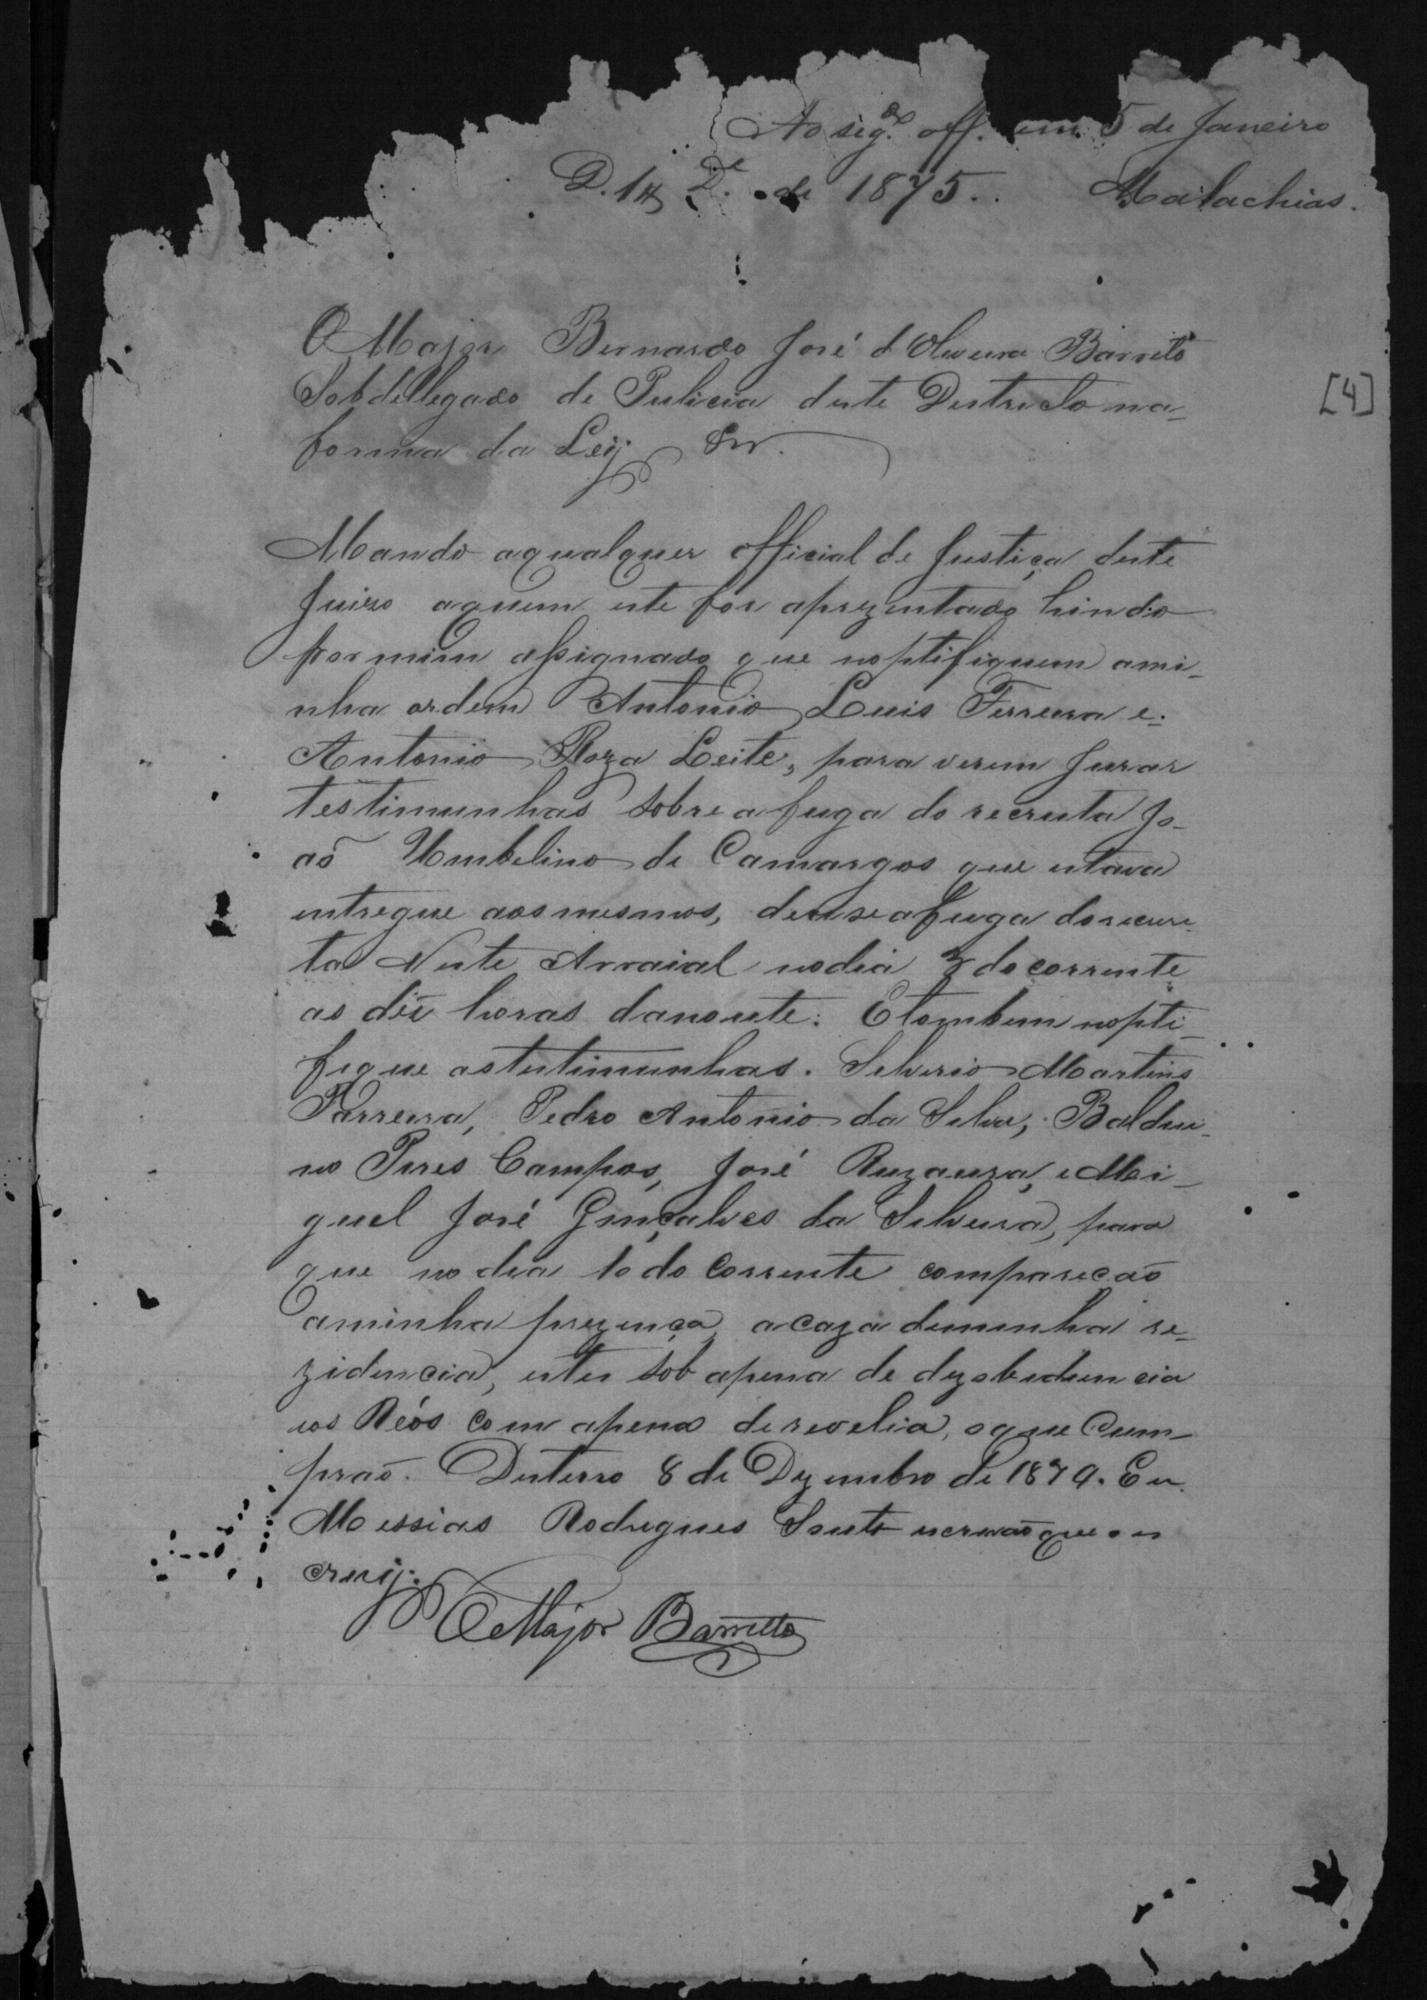 Ao seg.do off. em 5 de Janeiro
D. 14 D.e de 1875. Malachias.
[4]
O Major Bernardo José d'Oliveira Barreto
Sobdellegado de Pulicia deste Destricto na
forma da Leij &.
Mando aqualquer official de Justiça deste
Juizo aquem este for aprezentado hindo
por mim assignado que noptifiquem ami-
nha ordem Antonio Luis Ferreira e
Antonio Roza Leite, para verem Jurar
testimunhas sobre a fuga do recruta Jo-
aõ Umbelino de Camargos que estava
entregue aos mesmos, deu se a fuga do recru-
ta Neste Arraial no dia do corrente
as dés horas da noute: E tombem nopti-
fique as testimunhas. Silverio Martins
Parreira, Pedro Antonio da Silva, Baldui-
no Pires Campos, José e Mi-
guel José Gonçalves da Silveira, para
que no dia 10 do Corrente compareçaõ
aminha prezença, a caza deminha re-
zidencia, estes sob apena de dezobediencia
eos Reós com apena de revelia, o que Cum-
praõ. Desterro 8 de Dezembro de 1874. Eu
Messias Rodrigues Souto escrivaõ que o es
crevij.
O Major Barretto